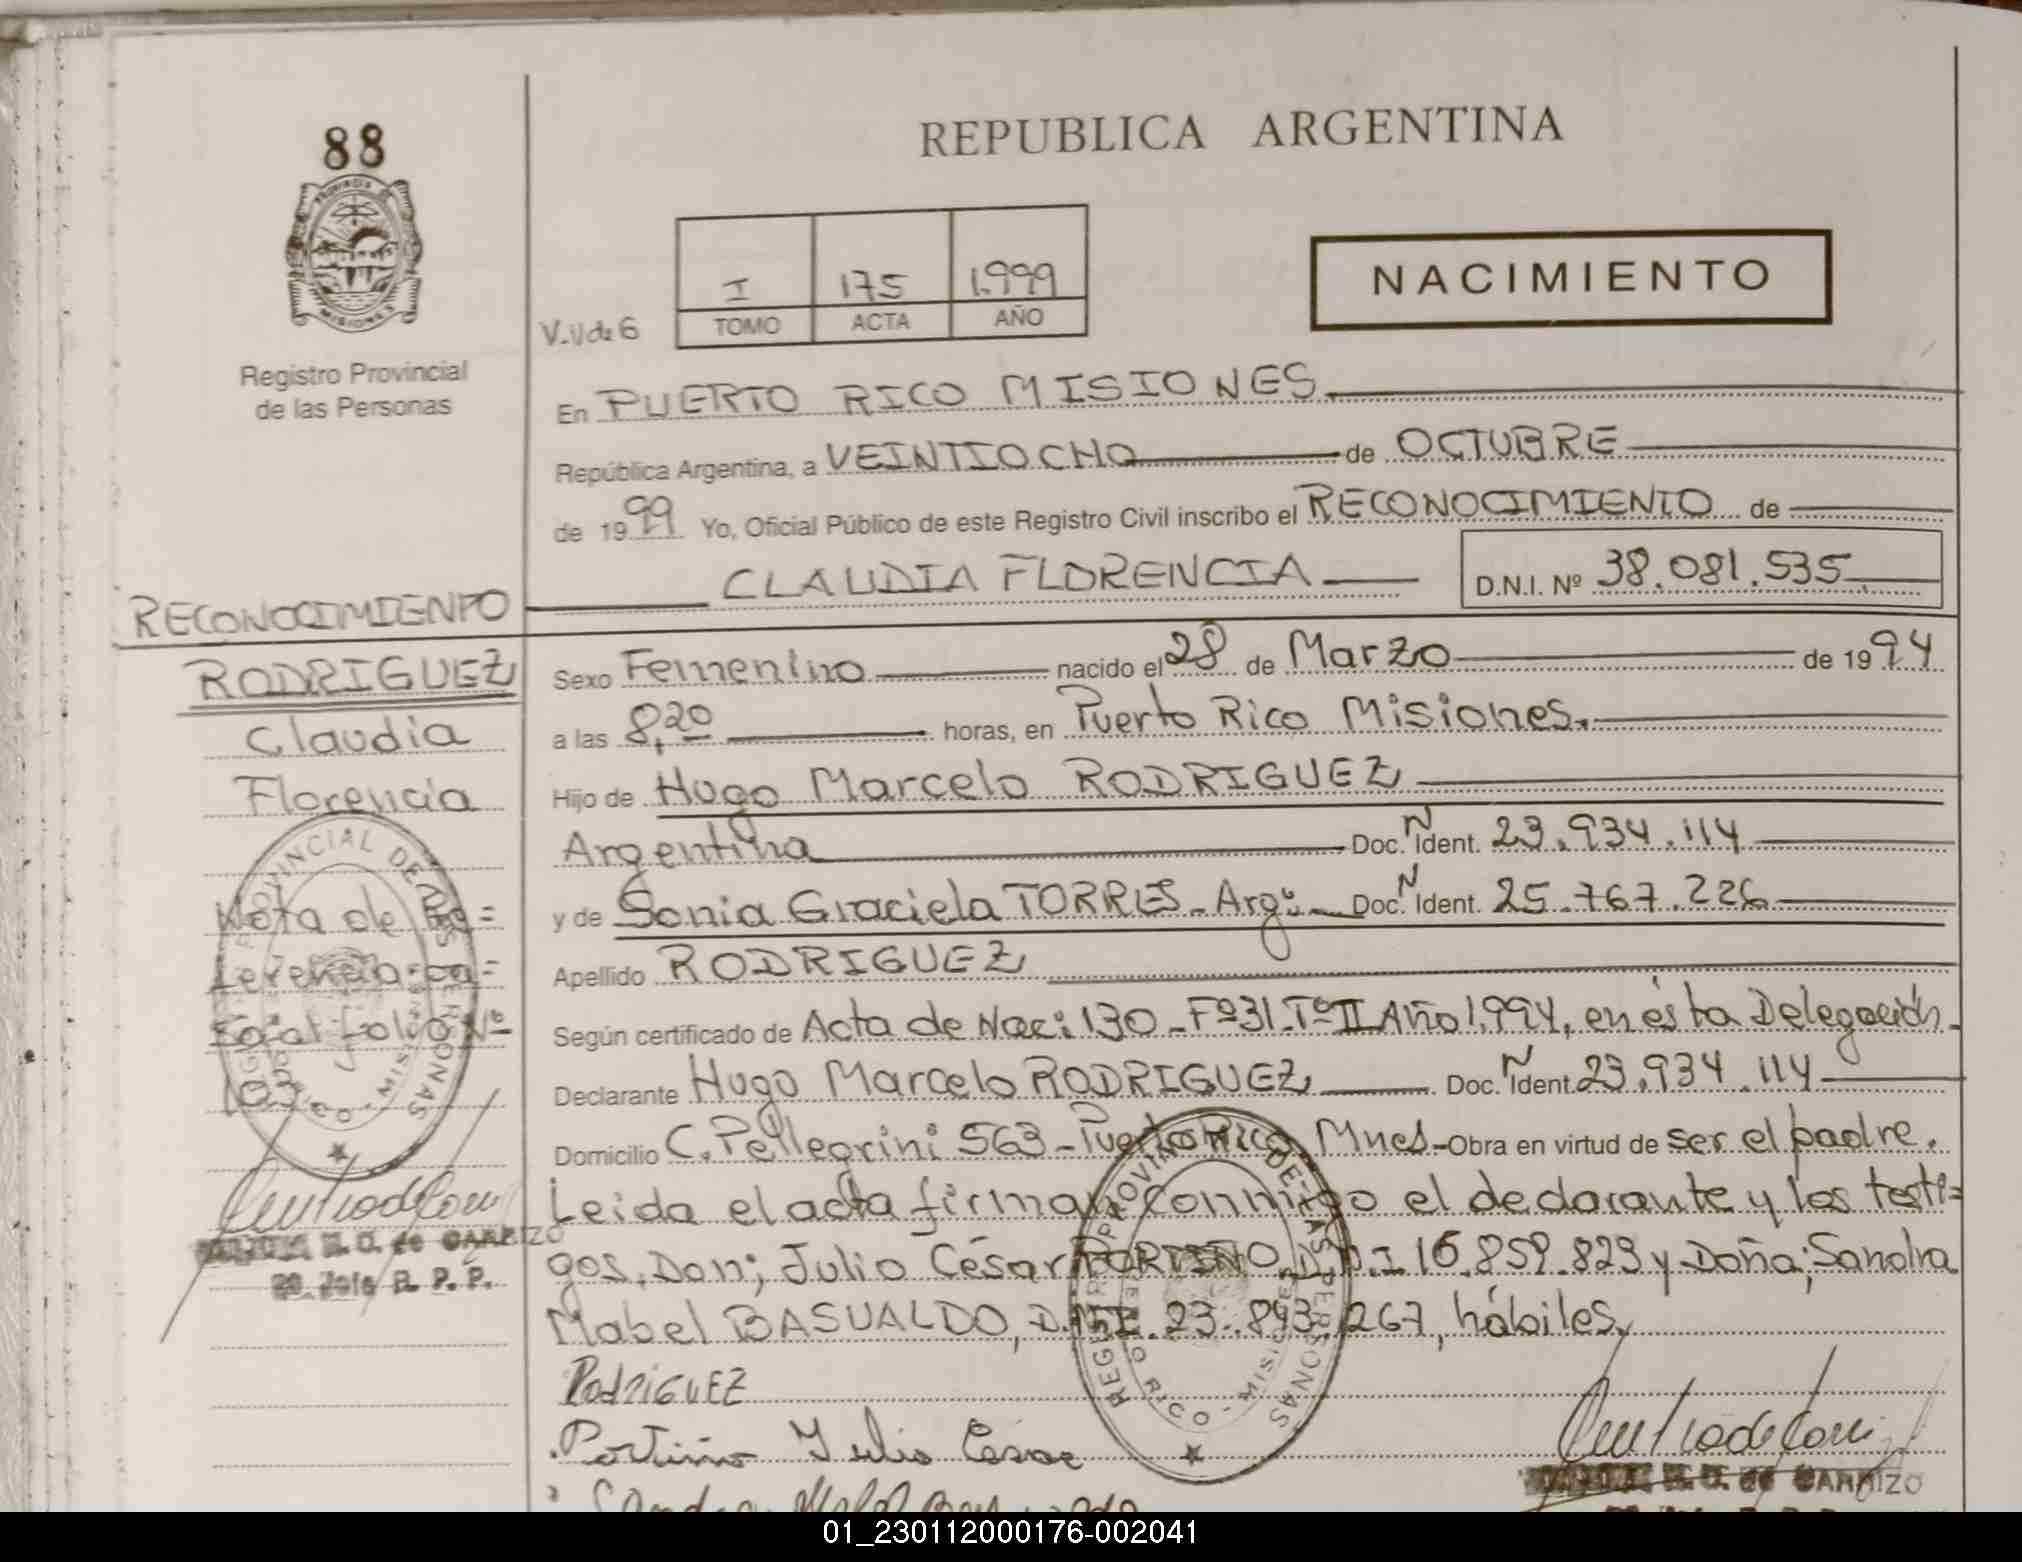 88
REPUBLICA ARGENTINA
I 175 1.999
TOMO ACTA AÑO
NACIMIENTO
Registro Provincial
de las Personas
En PUERTO RICO MISIONES.
República Argentina, a VEINTIOCHO de OCTUBRE
de 1999 Yo, Oficial Público de este Registro Civil inscribo el RECONOCIMIENTO de
CLAUDIA FLORENCIA D.N.I. Nº 38.081.535
RECONOCIMIENTO
RODRIGUEZ
Claudia
Florencia
Nota de
Nº
103
Sexo Femenino nacido el 28 de Marzo de 1994
a las 8,20 horas, en Puerto Rico Misiones.
Hijo de Hugo Marcelo RODRIGUEZ
Argentina Doc. N Ident. 23.934.114
y de Sonia Graciela TORRES - Arg. Doc. N Ident. 25.767.226
Apellido RODRIGUEZ
Según certificado de Acta de Nac: 130 - Fº 31 - Tº II Año 1.994, en ésta Delegación.
Declarante Hugo Marcelo RODRIGUEZ Doc. N Ident. 23.934.114
Domicilio C. Pellegrini 563 - Puerto Rico Mnes - Obra en virtud de ser el padre.
Leida el acta firman conmigo el declarante y los testi=
gos, Don; Julio César PORTIÑO, D.N.I. 16.859.823 y Doña; Sandra
Mabel BASUALDO, D.N.I. 23.843.267, hábiles,
RodriGUEZ
Portiño Julio Cesar
de CARRIZO
R. P. P.
de CARRIZO
01_230112000176-002041